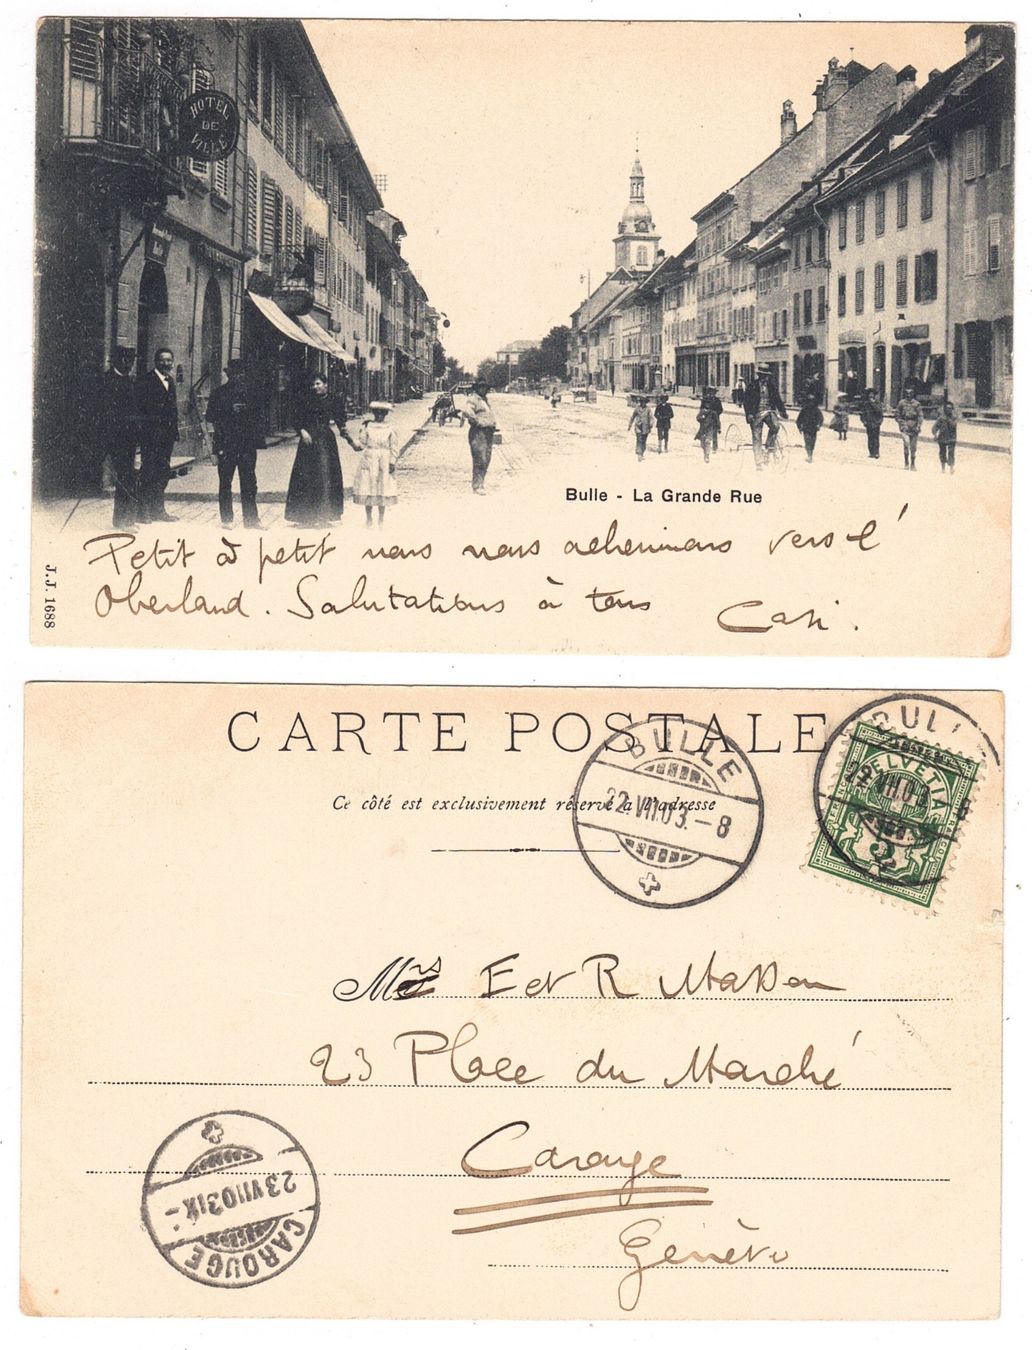 HOTEL
DE
VILLE
Bulle - La Grande Rue
Petit à petit nous nous acheminons vers l'
Oberland. Salutations à tous
J.J. 1688
CARTE POSTALE
Ce côté est exclusivement réservé à l'adresse
BULLE
22.VII.03.-8
BULL
22.VII.03 8
HELVETIA
5
Mrs E et R Masson
23 Place du Marché
Carouge
Genève
23.VII.03.IX-
CAROUGE